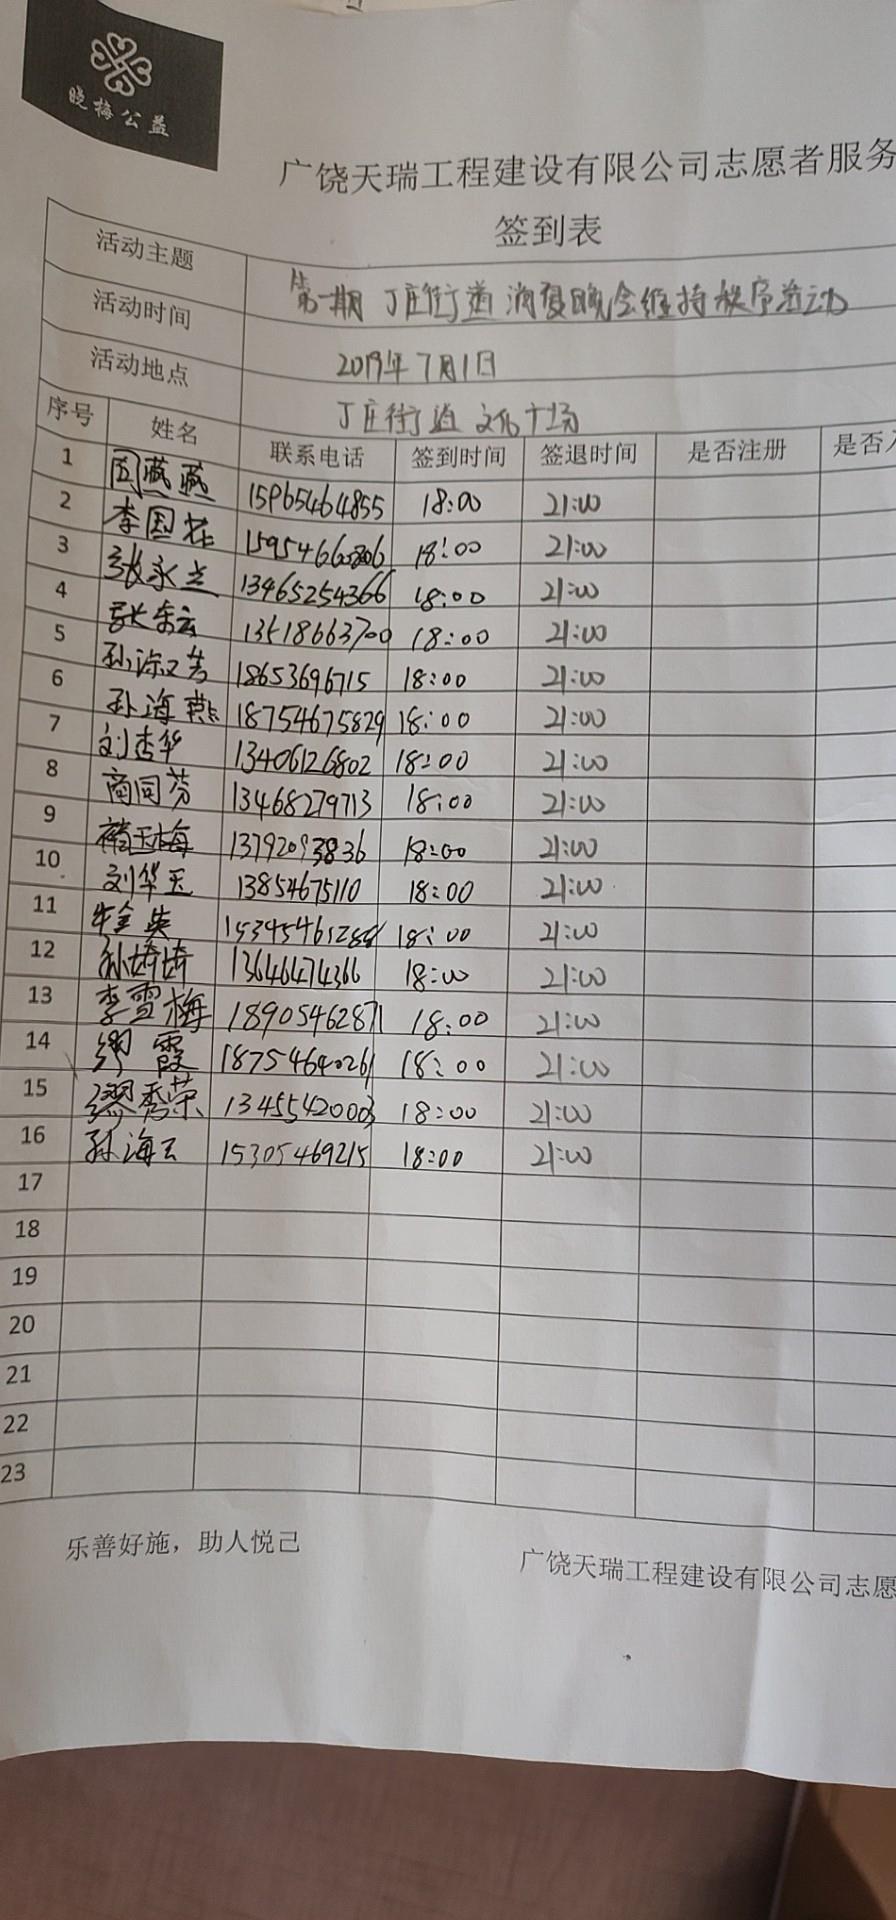 晓梅公益
广饶天瑞工程建设有限公司志愿者服务
签到表
活动主题 第一期 丁庄街道 消夏晚会维持秩序活动
活动时间 2019年7月1日
活动地点 丁庄街道 文化广场
序号 姓名 联系电话 签到时间 签退时间 是否注册 是否
1 周燕燕 15965464855 18:00 21:00
2 李国花 18:00 21:00
3 张永兰 13465254366 18:00 21:00
4 张 云 18:00 21:00
5 孙 芳 18653696715 18:00 21:00
6 孙海燕 18754675829 18:00 21:00
7 刘杏华 13406126802 18:00 21:00
8 商同芬 13468279713 18:00 21:00
9 褚玉梅 13792093836 18:00 21:00
10 刘华玉 13854675110 18:00 21:00
11 牛金英 18:00 21:00
12 孙婷婷 13646474366 18:00 21:00
13 李雪梅 18905462871 18:00 21:00
14 缪霞 18754640261 18:00 21:00
15 缪秀荣 13455420003 18:00 21:00
16 孙海云 15305469215 18:00 21:00
17
18
19
20
21
22
23
乐善好施，助人悦己
广饶天瑞工程建设有限公司志愿